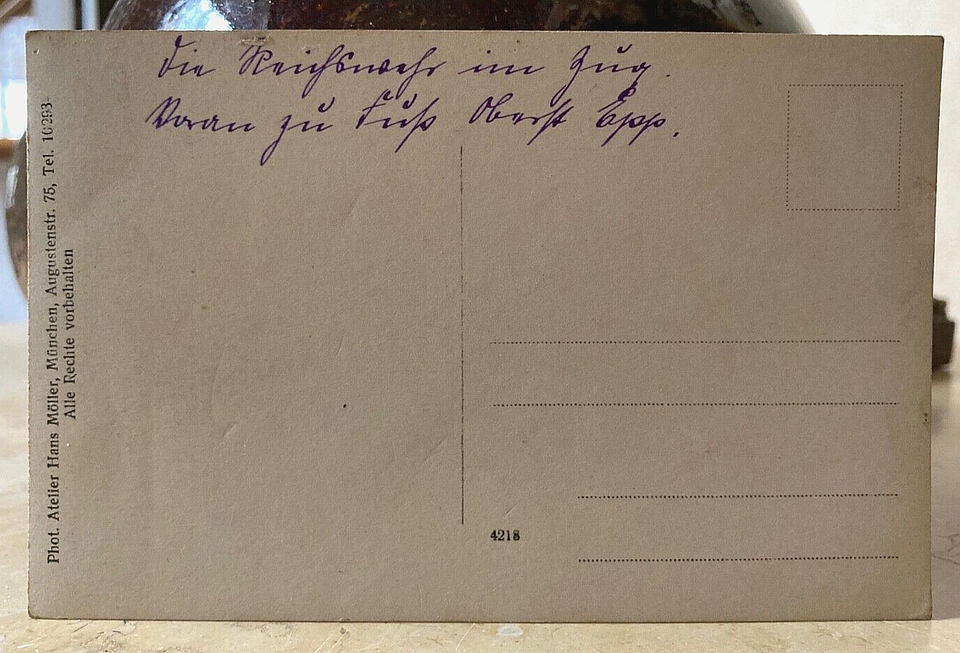 Die Reichswehr im Zug.
Voran zu Fuß Oberst Epp.
Phot. Atelier Hans Möller, München, Augustenstr. 75, Tel. 10293
Alle Rechte vorbehalten
4218